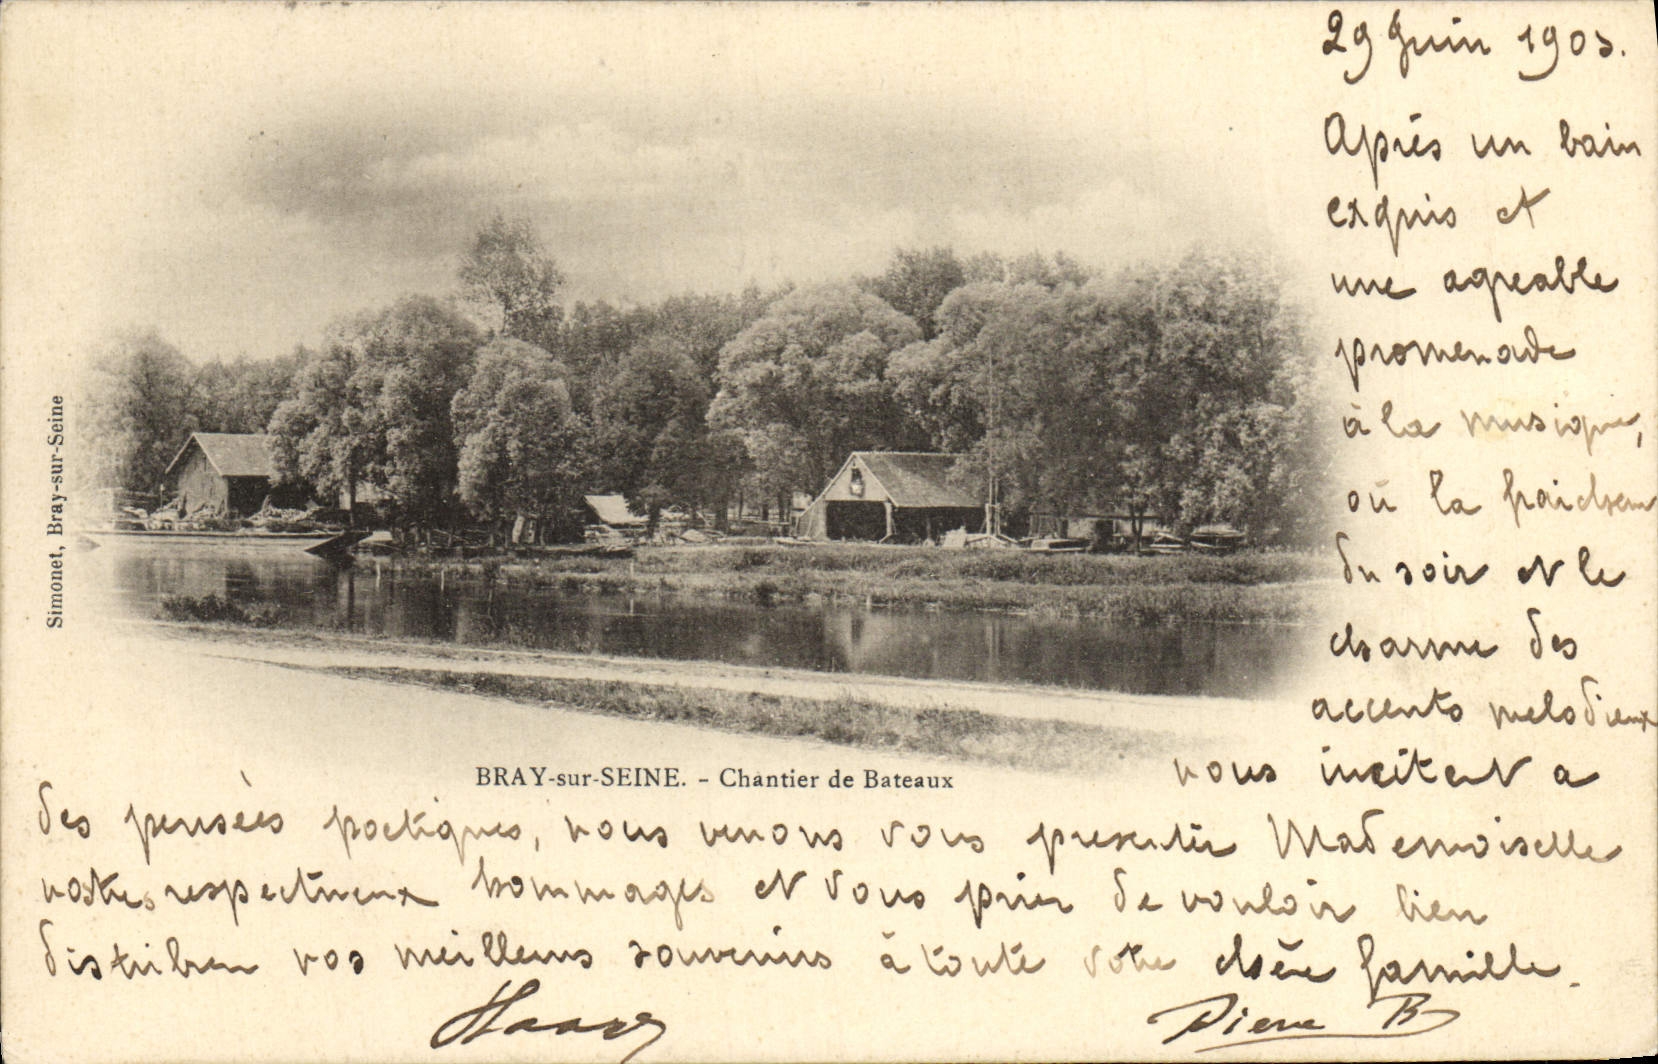 29 Juin 1903.
Après un bain
exquis et
une agreable
promenade
à la musique,
où la fraicheur
du soir et le
charme des
accents melodieux
nous incitent a
des pensées poetiques, nous venons vous presenter Mademoiselle
nos respectueux hommages et vous prier de vouloir bien
distribuer nos meilleurs souvenirs à toute votre chère famille.
Pierre B
BRAY-sur-SEINE. - Chantier de Bateaux
Simonet, Bray-sur-Seine